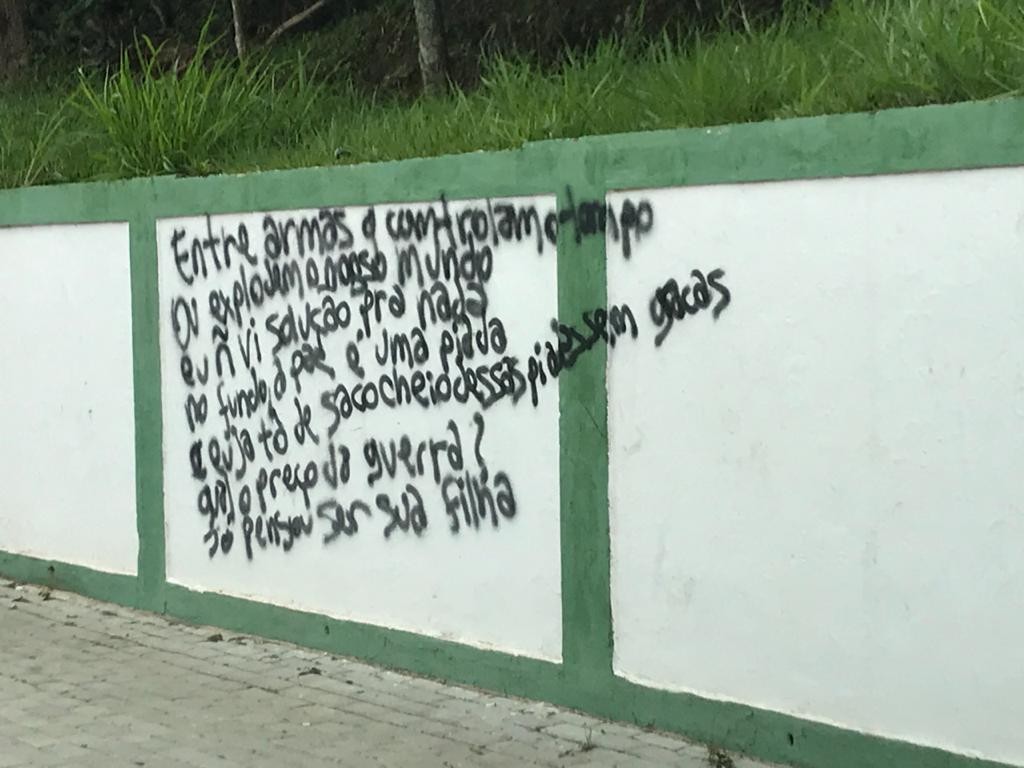 Entre armas q comtrolam o tempo
Ou explodem o nosso mundo
eu ñ vi solução pra nada
no fundo a paz é uma piada
q eu ja tô de saco cheio dessas piadas sem gacas
qal o preço da guerra?
Já pensou ser sua filha